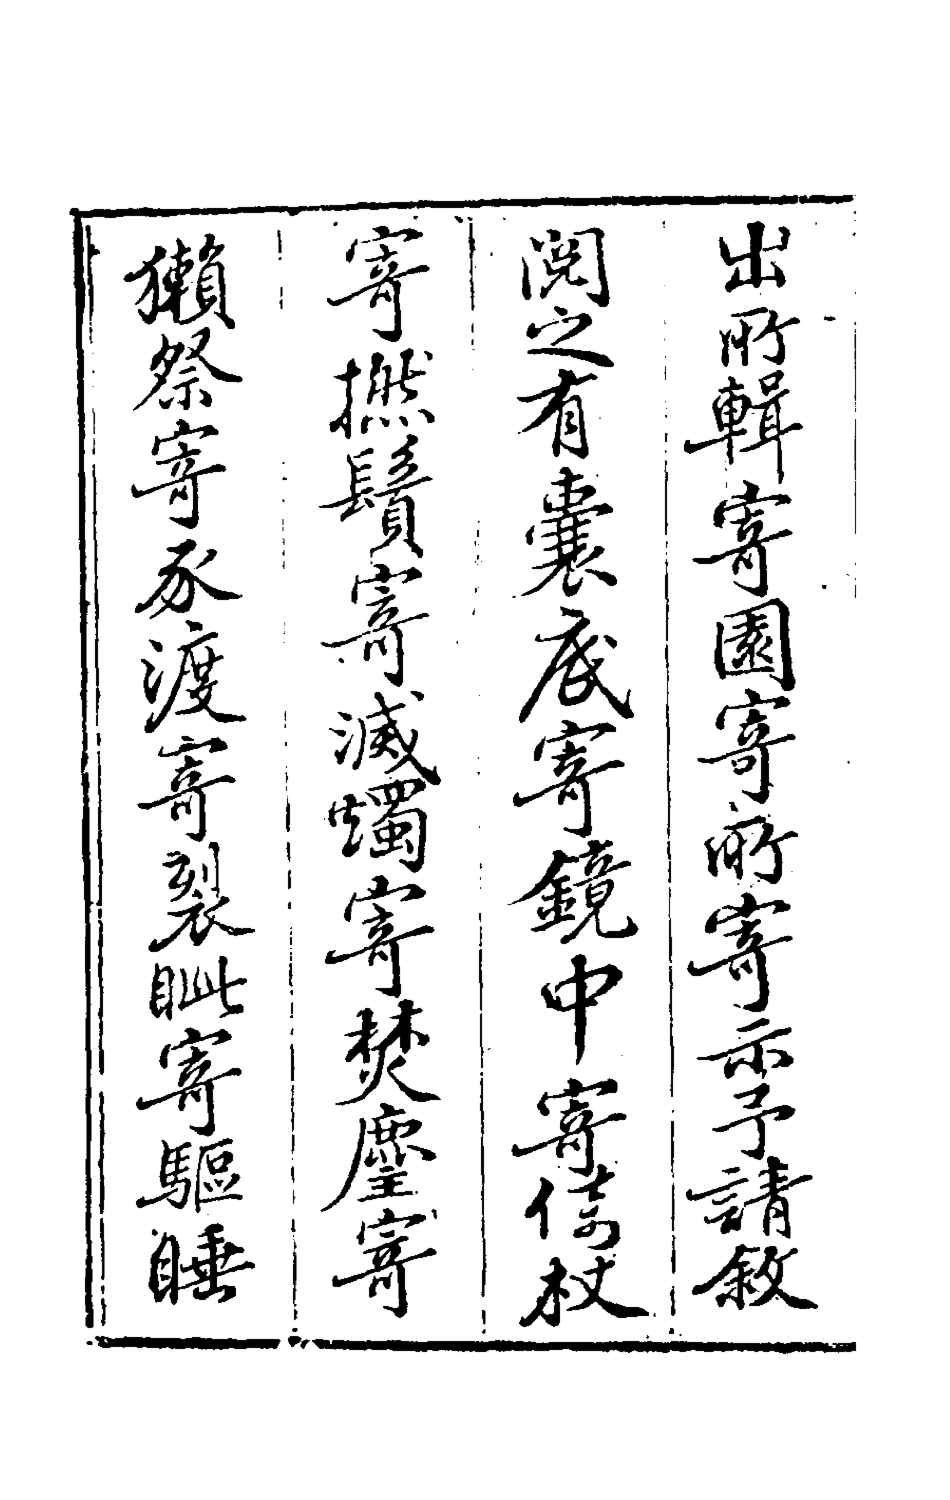 出所輯寄園寄所寄示予請敘
閱之有囊底寄鏡中寄倚杖
寄撚鬚寄滅燭寄焚麈寄
獺祭寄豕渡寄裂眦寄驅睡